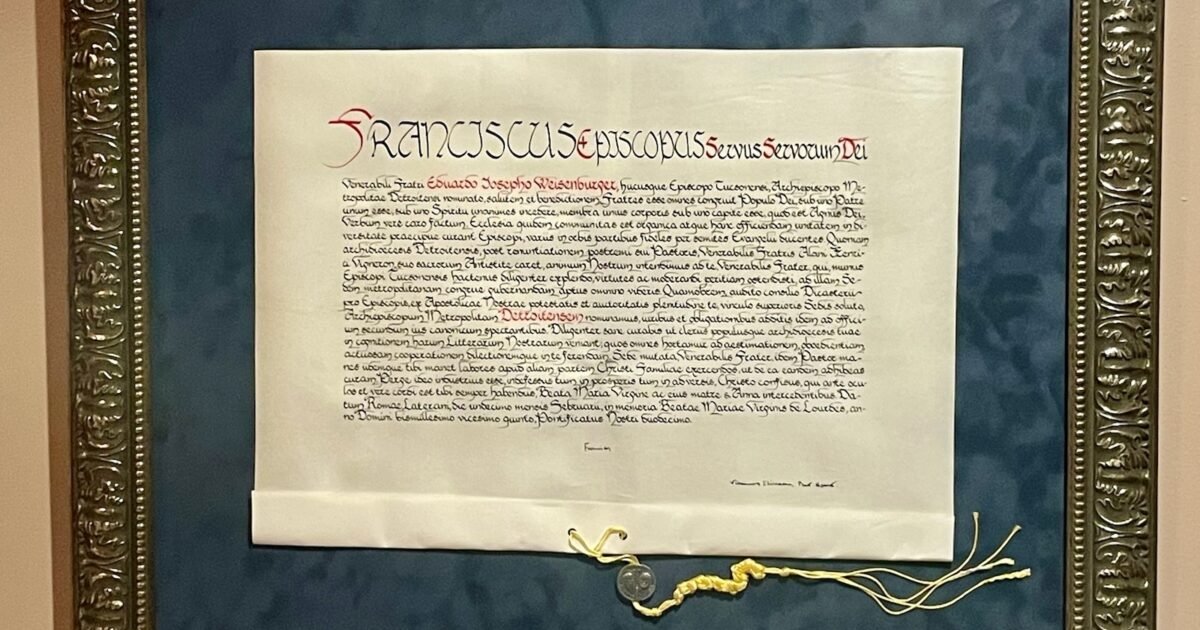 FRANCISCUS EPISCOPUS Servus Servorum Dei
Venerabili Fratri Eduardo Josepho Weisenburger, hucusque Episcopo Tucsonensi, Archiepiscopo Me-
tropolitae Detroitensi nominato, salutem et benedictionem. Fratres esse omnes congruit Populi Dei, sub uno Patre
unum esse, sub uno Spiritu unanimes incedere, membra unius corporis sub uno capite esse, quod est Agnus Dei,
Verbum vere caro factum. Ecclesia quidem communitas est organica atque hanc officiendam unitatem in di-
versitate praecipue curant Episcopi, variis in orbis partibus fideles per semitas Evangelii ducentes. Quoniam
archidioecesis Detroitensis, post renuntiationem postremi sui Pastoris, Venerabilis Fratris Alani Henri-
ci Vigneron, suo sacrorum Antistite caret, animum Nostrum intendimus ad te, Venerabilis Frater, qui, munus
Episcopi Tucsonensis hactenus diligenter explendo, virtutes ac moderandi peritiam ostendisti, ad illam Se-
dem metropolitanam congrue gubernandam aptus omnino videris. Quamobrem, audito consilio Dicasterii
pro Episcopis, ex Apostolicae Nostrae potestatis et auctoritatis plenitudine te, vinculo superioris Sedis soluto,
Archiepiscopum Metropolitam Detroitensem nominamus, iuribus et obligationibus additis idem ad offici-
um secundum ius canonicum spectantibus. Diligenter sane curabis ut clerus populusque archidioecesis tuae
in cognitionem harum Litterarum Nostrarum veniant; quos omnes hortamur ad aestimationem, obedientiam,
actuosam cooperationem dilectionemque in te ferendam. Sede mutata, Venerabilis Frater, idem Pastor ma-
nes idemque tibi manet labores apud aliam partem Christi Familiae exercendos, ut de ea eandem adhibeas
curam. Perge ideo industrius esse, indefessus tum in prosperis tum in adversis, Christo confisus, qui ante ocu-
los et vere cordi est tibi semper habendus, Beata Maria Virgine ac eius matre s. Anna intercedentibus. Da-
tum Romae, Laterani, die undecimo mensis Februarii, in memoria Beatae Mariae Virginis de Lourdes, an-
no Domini bismillesimo vicesimo quinto, Pontificatus Nostri duodecimo.